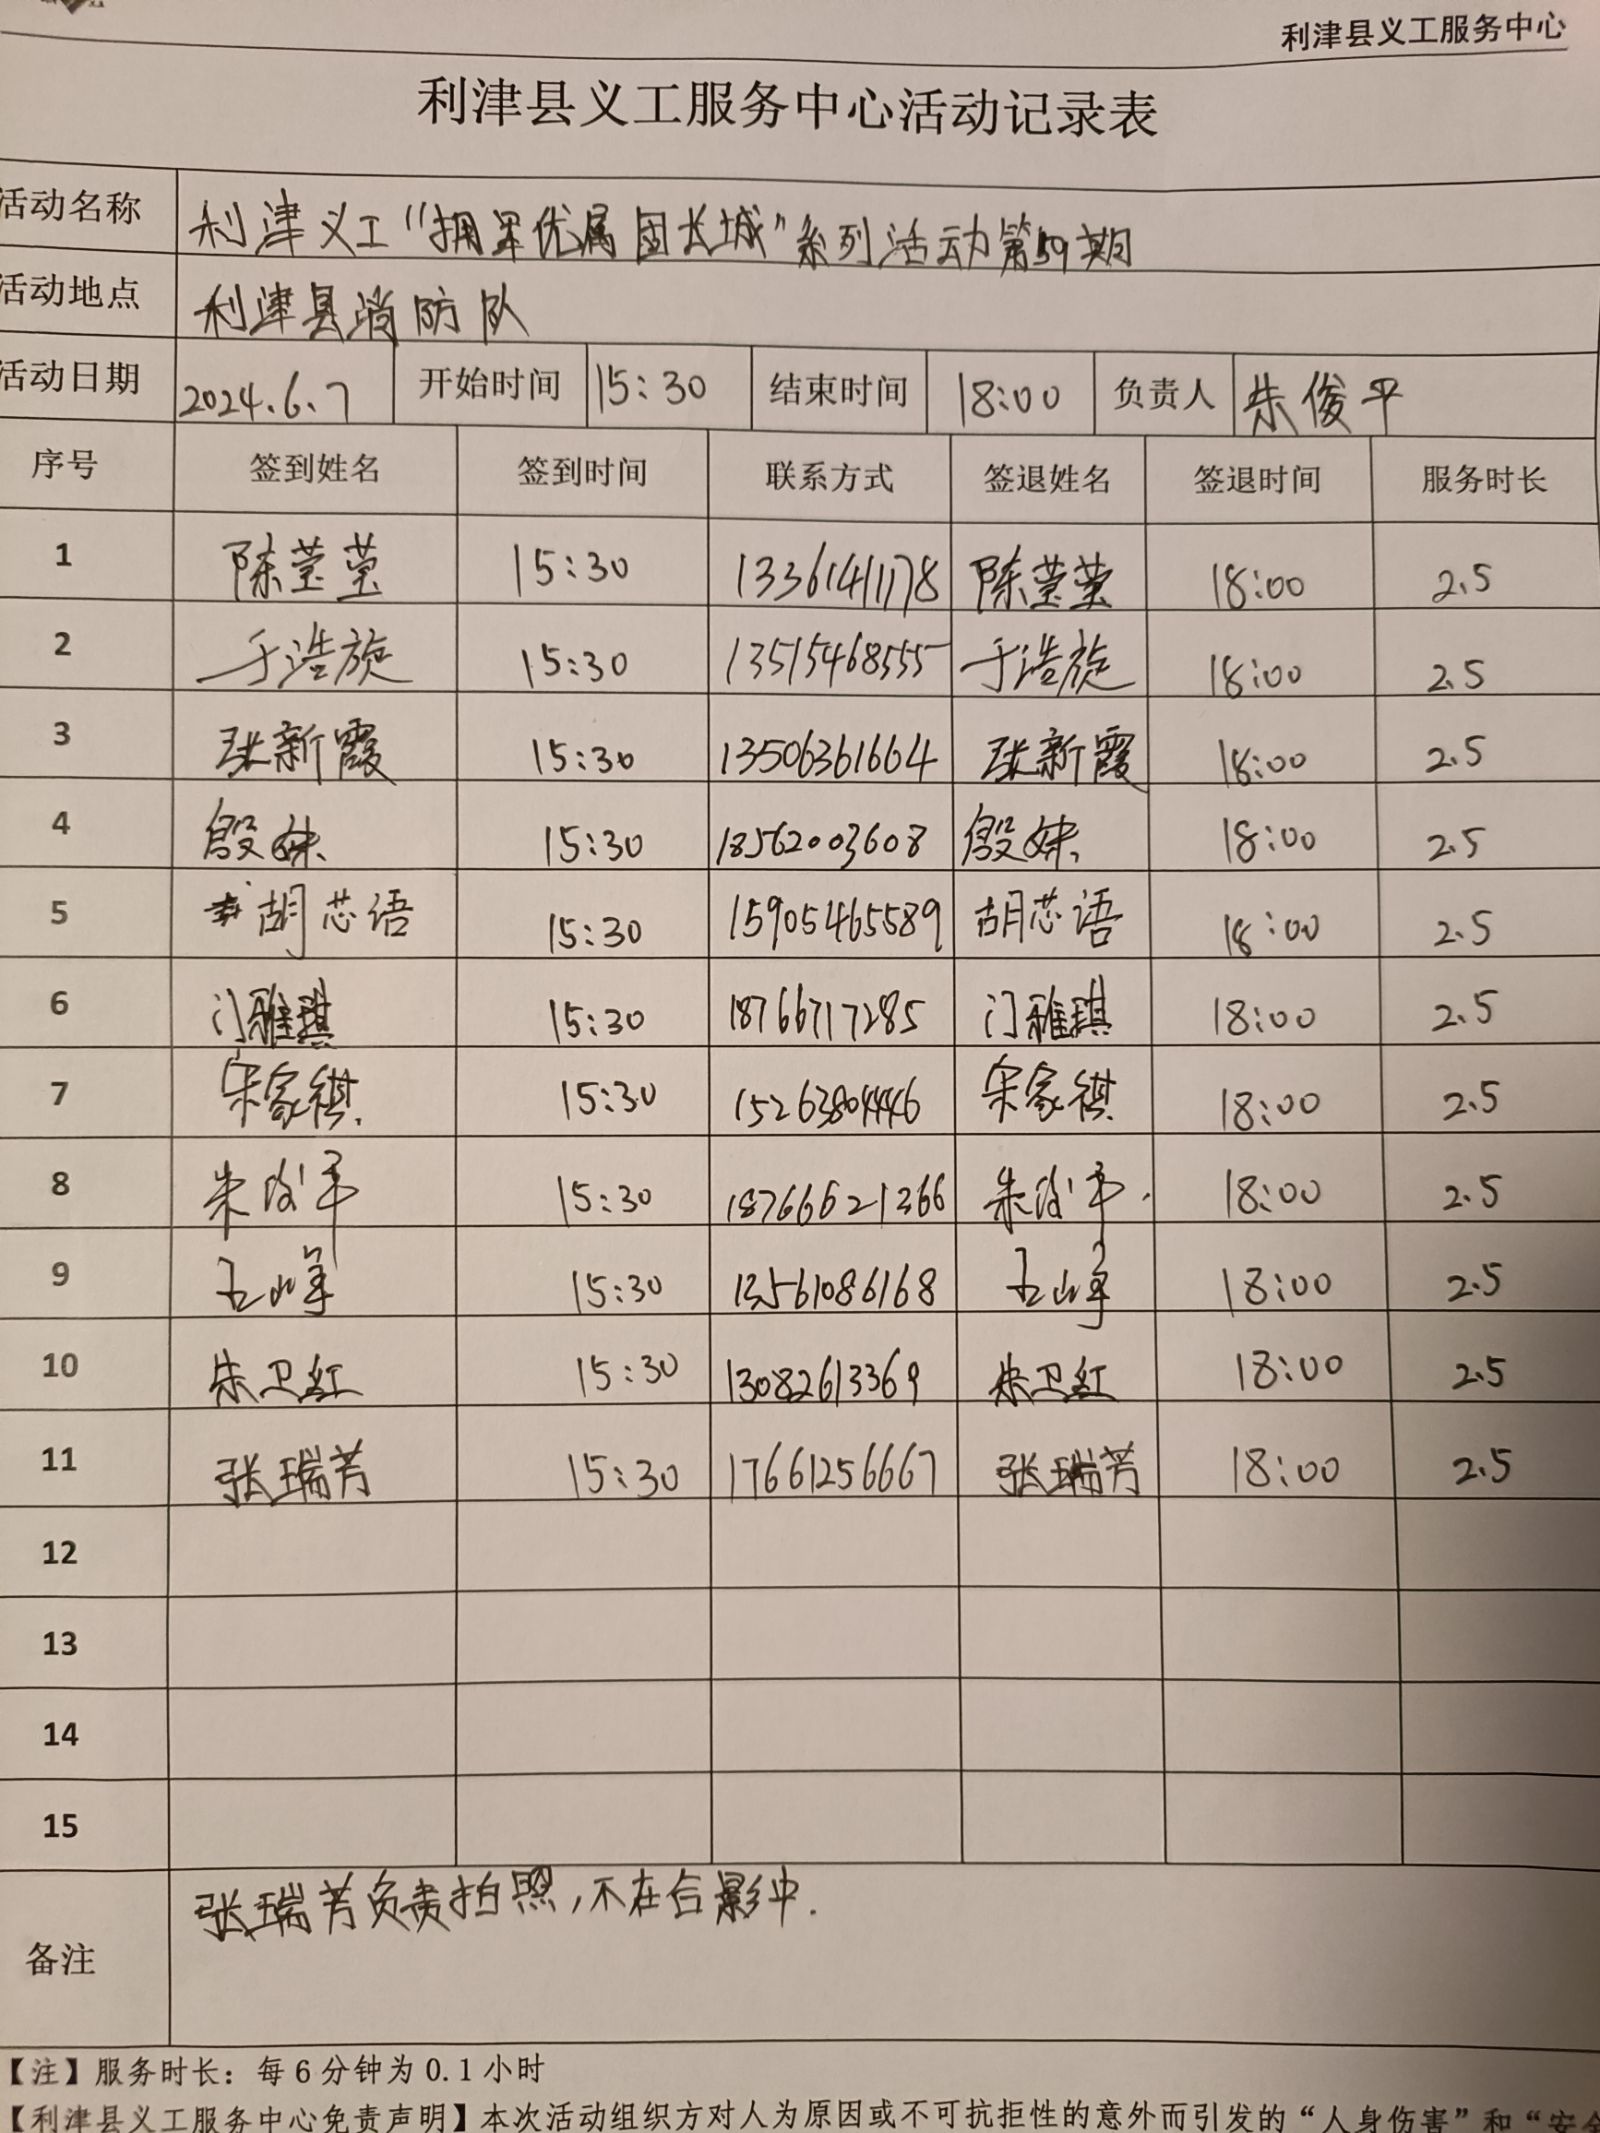 利津县义工服务中心
利津县义工服务中心活动记录表
活动名称 利津义工“拥军优属 固长城”系列活动第59期
活动地点 利津县消防队
活动日期 2024.6.7 开始时间 15:30 结束时间 18:00 负责人 朱俊平
序号 签到姓名 签到时间 联系方式 签退姓名 签退时间 服务时长
1 陈莹莹 15:30 13361411178 陈莹莹 18:00 2.5
2 于浩旋 15:30 13515468555 于浩旋 18:00 2.5
3 张新霞 15:30 13506361664 张新霞 18:00 2.5
4 殷妹 15:30 18562003608 殷妹 18:00 2.5
5 胡芯语 15:30 15905465589 胡芯语 18:00 2.5
6 门雅琪 15:30 18766717285 门雅琪 18:00 2.5
7 宋家祺 15:30 15263804446 宋家祺 18:00 2.5
8 朱俊平 15:30 18766621366 朱俊平 18:00 2.5
9 15:30 13561086168 18:00 2.5
10 朱卫红 15:30 13082613369 朱卫红 18:00 2.5
11 张瑞芳 15:30 17661256667 张瑞芳 18:00 2.5
12
13
14
15
备注 张瑞芳负责拍照,不在合影中.
【注】服务时长：每6分钟为0.1小时
【利津县义工服务中心免责声明】本次活动组织方对人为原因或不可抗拒性的意外而引发的“人身伤害”和“安全